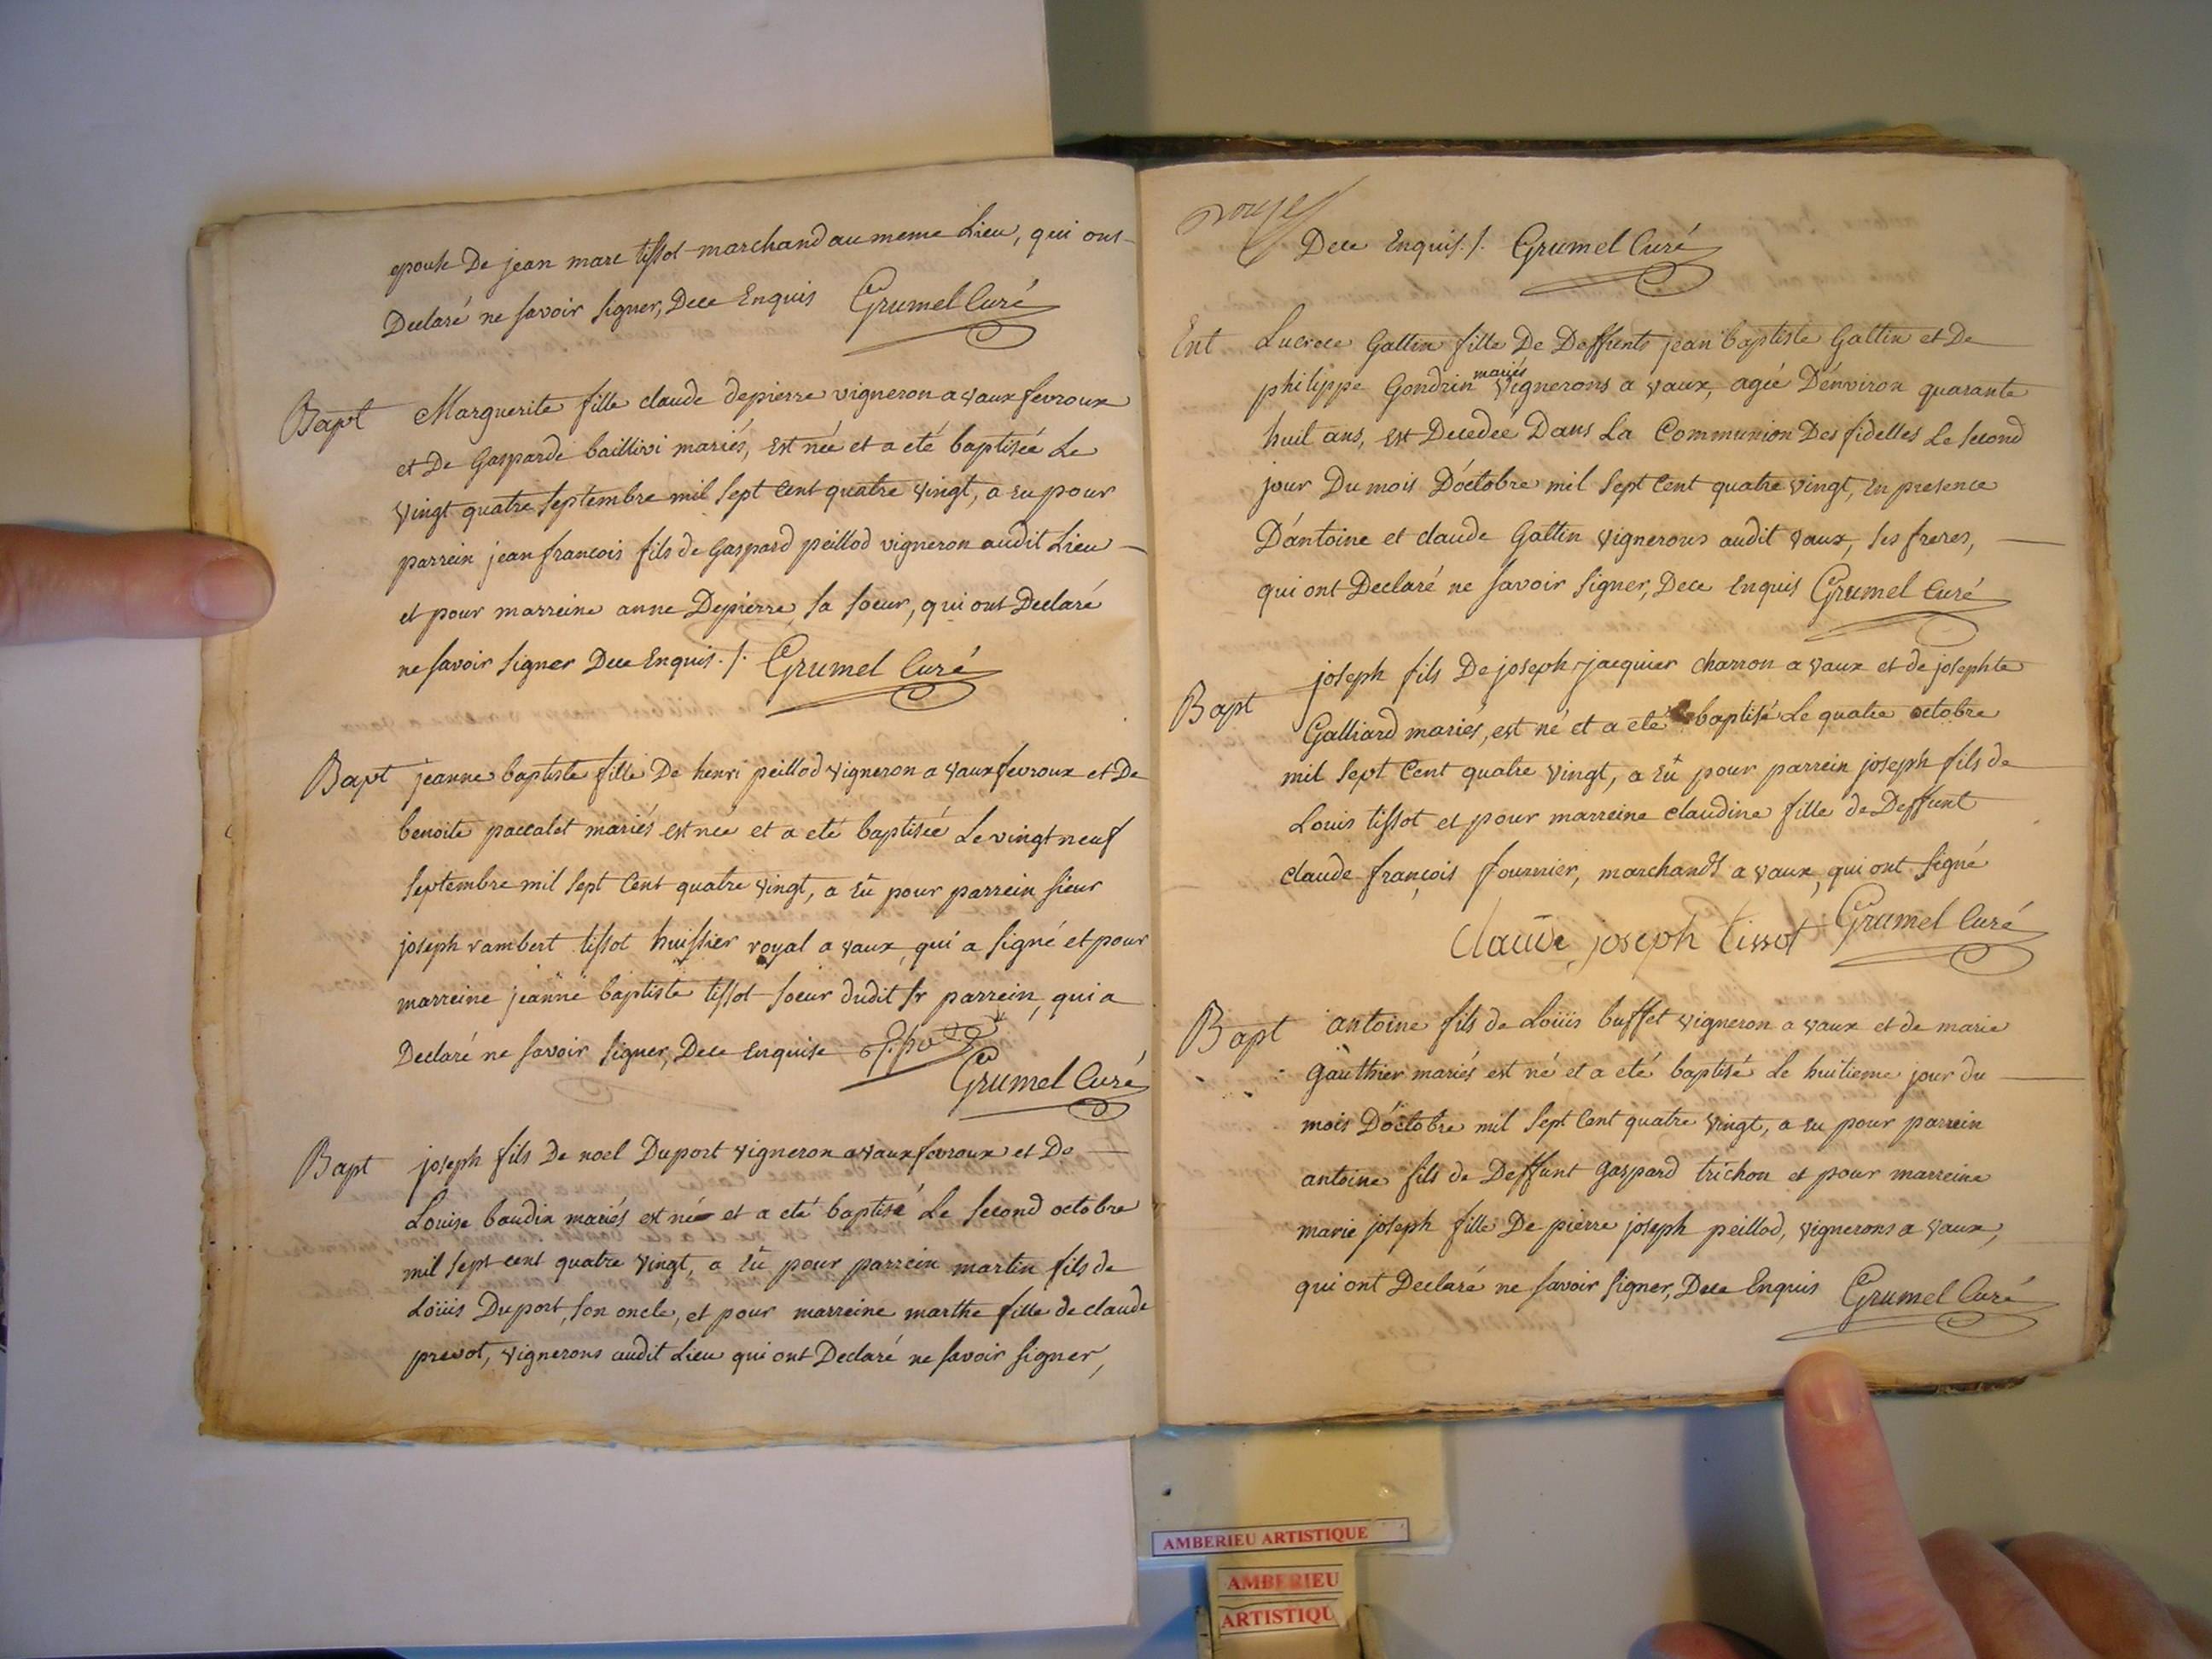 epouse De jean marc tissot marchand au meme Lieu, qui ont
Declaré ne savoir signer, Dece Enquis Grumel Curé
Bapt Marguerite fille claude depierre vigneron a vaux fevroux
et De Gasparde baillivi mariés, est née et a eté baptisée Le
vingt quatre septembre mil sept Cent quatre vingt, a eu pour
parrein jean francois fils de Gaspard peillod vigneron audit Lieu
et pour marreine anne Depierre, sa soeur, qui ont Declaré
ne savoir signer Dece Enquis ./. Grumel Curé
Bapt jeanne baptiste fille De henri peillod vigneron a vaux fevroux et De
benoite paccalet mariés est née et a eté baptisée Le vingt neuf
septembre mil sept Cent quatre vingt, a Eü pour parrein sieur
joseph rambert tissot huissier royal a vaux, qui a signé et pour
marreine jeanne baptiste tissot soeur dudit sr parrein, qui a
Declaré ne savoir signer, Dece Enquise
Grumel Curé
Bapt joseph fils De noel Duport vigneron a vaux fevroux et De
Louise baudin mariés est né et a eté baptisé Le second octobre
mil sept cent quatre vingt, a Eü pour parrein martin fils de
Loüis Duport, son oncle, et pour marreine marthe fille de claude
prevot, vignerons audit Lieu qui ont Declaré ne savoir signer,
Dece Enquis ./. Grumel Curé
Ent Lucrece Gallin fille De Deffunts jean baptiste Gallin et De
philippe Gondrin mariés vignerons a vaux, agée D'environ quarante
huit ans, est Decedée Dans La Communion Des fidelles Le second
jour Du mois D'octobre mil sept Cent quatre vingt, en presence
D'antoine et claude Gallin vignerons audit vaux, ses freres,
qui ont Declaré ne savoir signer, Dece Enquis Grumel Curé
Bapt joseph fils De joseph jacquier charron a vaux et de josephte
Galliard mariés, est né et a eté baptisé Le quatre octobre
mil sept Cent quatre vingt, a Eü pour parrein joseph fils de
Louis tissot et pour marreine claudine fille de Deffunt
claude françois fournier, marchands a vaux, qui ont signé
Claude joseph tissot Grumel Curé
Bapt antoine fils de Loüis buffet vigneron a vaux et de marie
Gauthier mariés est né et a eté baptisé Le huitieme jour du
mois D'octobre mil sept Cent quatre vingt, a eu pour parrein
antoine fils de Deffunt Gaspard trichon et pour marreine
marie joseph fille De pierre joseph peillod, vignerons a vaux,
qui ont Declaré ne savoir signer, Dece Enquis Grumel Curé
AMBERIEU ARTISTIQUE
AMBERIEU
ARTISTIQU